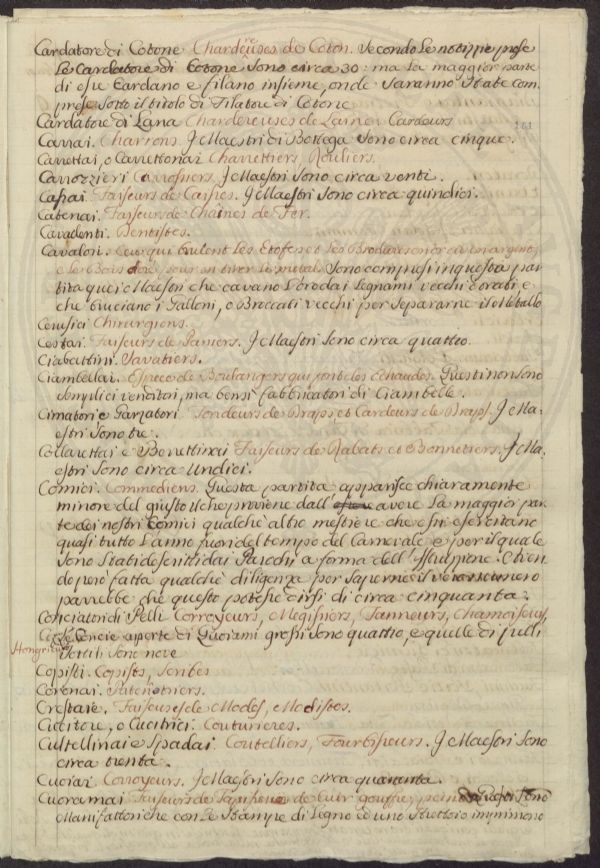 Cardatore di Cotone Chardeuses de Coton. Secondo le notizie prese
le Cardatore di Cotone sono circa 30. ma la maggior parte
di esse Cardano e filano insieme, onde saranno state com
prese sotto il titolo di Filatore di Cotone
Cardatore di Lana Chardereuses de Laine, Cardeurs
161
Carrai. Charrons. I Maestri di Bottega sono circa cinque.
Carrettai, o Carrettonai Charrettiers, Rouliers.
Carrozzieri Carrossiers. I Maestri sono circa venti.
Cassai. Faiseurs de Caisses. I Maestri sono circa quindici.
Catenai. Faiseurs de Chaines de Fer.
Cavadenti. Dentistes.
Cavalori. Ceux qui brulent les Etofes et les Brodures en or ou en argent,
e les Bois doré, pour en tirer le metal. Sono compresi in questa par
tita quei Maestri che cavano l'oro dai Legnami vecchi dorati e
che bruciano i Galloni, o Broccati vecchi per separarne il Metallo
Cerusici Chirurgiens.
Cestai. Faiseurs de Paniers. I Maestri sono circa quattro.
Ciabattini. Savatiers.
Ciambellai. Espece de Boulangers qui font des echaudés. Questi non sono
semplici venditori, ma bensì fabbricatori di Ciambelle.
Cimatori e Garzatori. Tondeurs de Draps, et Cardeurs de Draps. I Ma-
estri sono tre.
Collarettai e Berrettinai Faiseurs de Rabats et Bonnetiers. I Ma-
estri sono circa Undici.
Comici. Commediens. Questa partita apparisce chiaramente
minore del giusto il che proviene dall' avere la maggior par
te dei nostri Comici qualche altro mestiere che essi esercitano
quasi tutto l'anno fuori del tempo del Carnevale e per il quale
sono stati descritti dai Parochi a forma dell' Istruzione. Ebben
do però fatta qualche diligenza per saperne il vero numero
parrebbe che questo potesse dirsi di circa cinquanta.
Conciatori di Pelli Corroyeurs, Megissiers, Tanneurs, Chamoiseurs,
Le Concie aperte di Quoiami grossi sono quattro, e quelle di pelli
Hongrieurs
sottili sono nove
Copisti. Copists, Scribes
Coronai. Patenotriers.
Crestaie. Faiseuses de Modes, Modistes.
Cucitore, o Cucitrici. Couturieres.
Cultellinai e Spadai Coutelliers, Fourbisseurs. I Maestri sono
circa trenta.
Cuoiai Corroyeurs. I Maestri sono circa quaranta.
Cuoramai Faiseurs de de Cuir gouffré, Questi sono
Manifattori che con le Stampe di Legno ed uno Strettoio imprimono